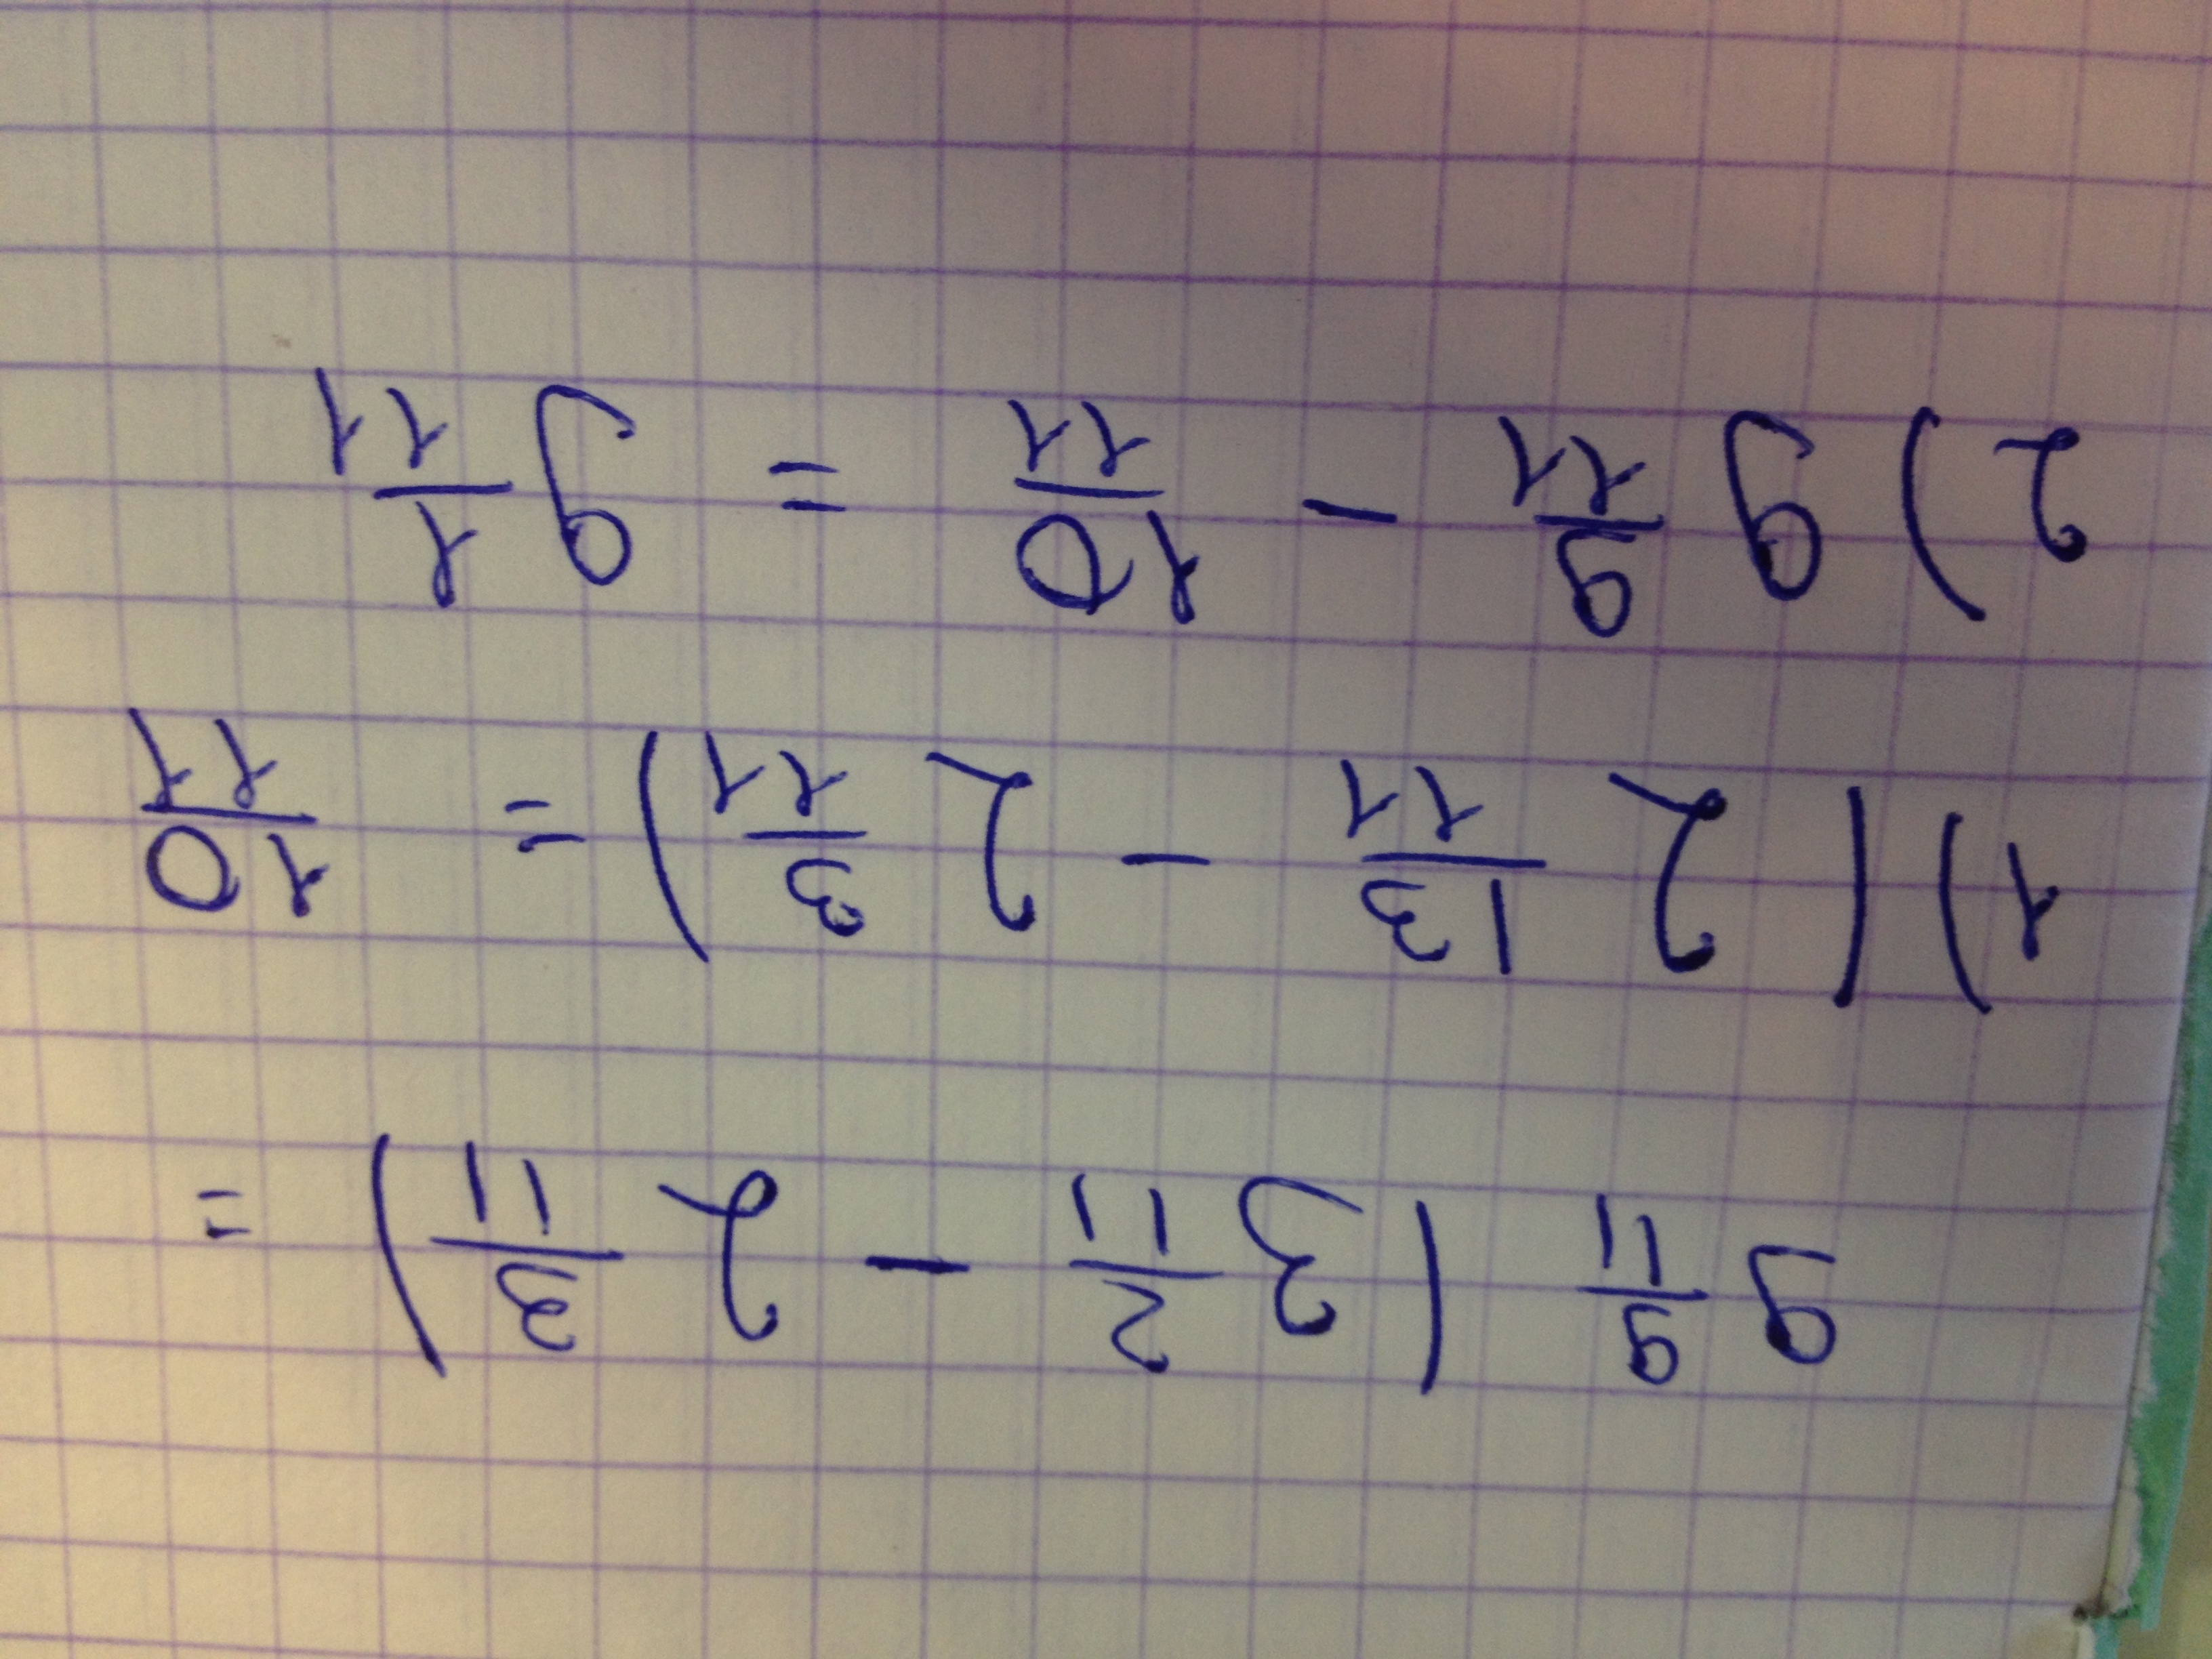 9 9/11 (3 2/11 - 2 3/11) =
1) (2 13/11 - 2 3/11) = 10/11
2) 9 9/11 - 10/11 = 9 1/11